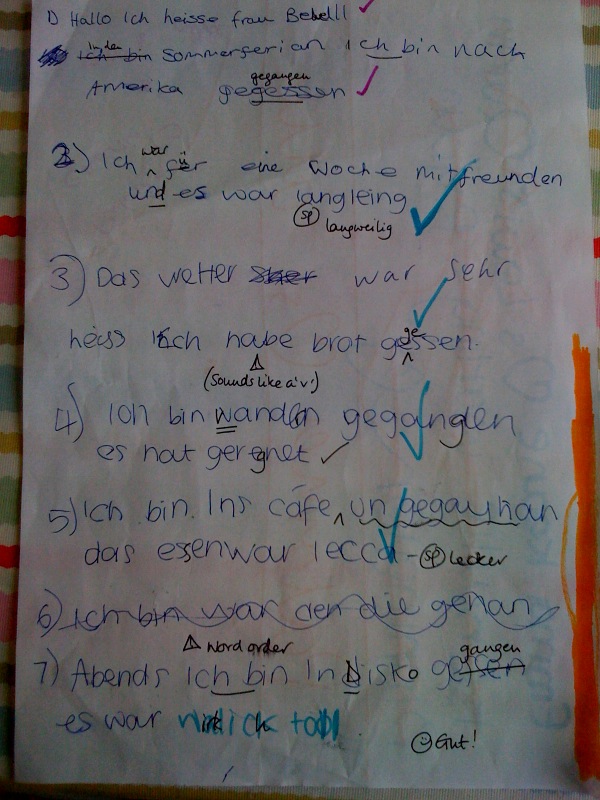 1) Hallo Ich heisse frau Bebell
in den
Ich bin Sommerferian ich bin nach
gegangen
Amerika gegessen
war
2) Ich für eine Woche mit freunden
und es war langleing
sp langweilig
3) Das wetter war Sehr
ge
heiss Ich habe brot gessen.
(Sounds like a 'v'!)
4) Ich bin wanden gegangen
es hat geregnet
5) Ich bin Ins café un
das essen war lecca - sp lecker
6) Ich bin war den die gehan
word order gangen
7) Abends Ich bin In Disko
es war toll
Gut!